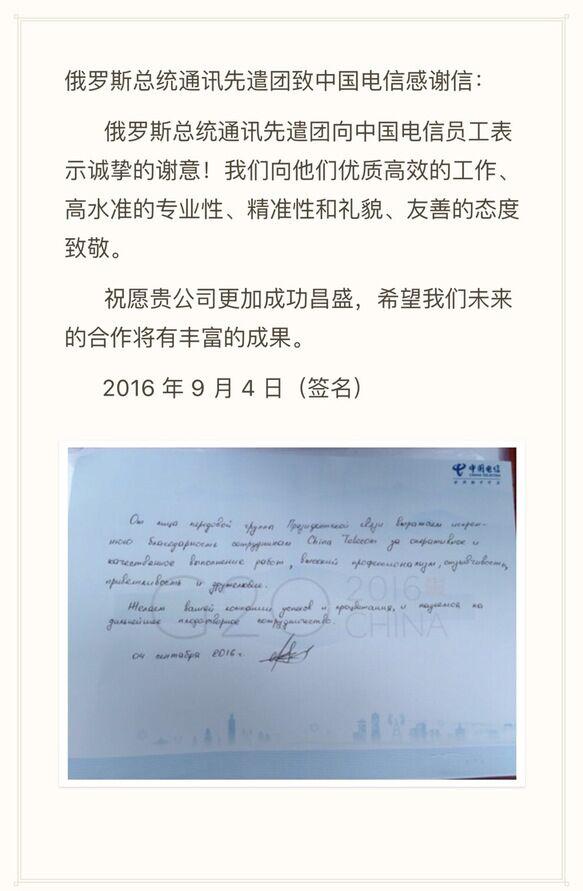 俄罗斯总统通讯先遣团致中国电信感谢信：
俄罗斯总统通讯先遣团向中国电信员工表
示诚挚的谢意！我们向他们优质高效的工作、
高水准的专业性、精准性和礼貌、友善的态度
致敬。
祝愿贵公司更加成功昌盛，希望我们未来
的合作将有丰富的成果。
2016 年 9 月 4 日（签名）
中国电信
CHINA TELECOM
От лица передовой группы Президентской связи выражаем искрен-
нюю благодарность сотрудникам China Telecom за оперативное и
качественное выполнение работ, высокий профессионализм, отзывчивость,
приветливость и дружелюбие.
Желаем вашей компании успехов и процветания, и надеемся на
дальнейшее плодотворное сотрудничество.
04 сентября 2016 г.
G20 2016
CHINA